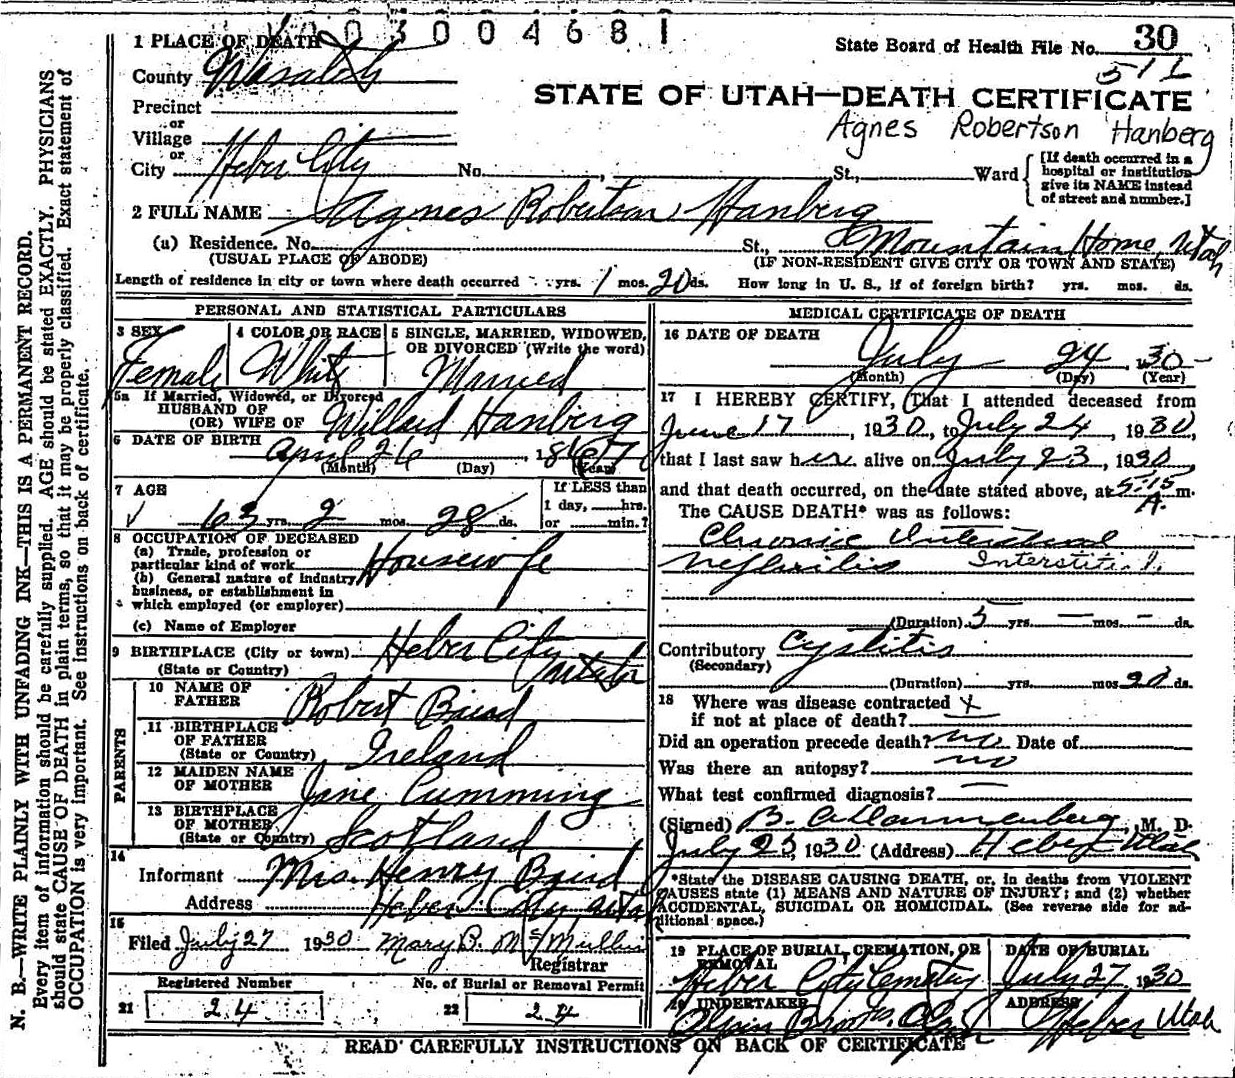 03004681
1 PLACE OF DEATH
State Board of Health File No. 30
County Wasatch
Precinct
or
Village
or
City Heber City No. , St., Ward
STATE OF UTAH—DEATH CERTIFICATE
Agnes Robertson Hanberg
[If death occurred in a
hospital or institution
give its NAME instead
of street and number.]
2 FULL NAME Agnes Robertson Hanberg
(a) Residence. No. St., Mountain Home, Utah
(USUAL PLACE OF ABODE) (IF NON-RESIDENT GIVE CITY OR TOWN AND STATE)
Length of residence in city or town where death occurred yrs. 1 mos. 20 ds. How long in U. S., if of foreign birth? yrs. mos. ds.
PERSONAL AND STATISTICAL PARTICULARS
3 SEX
Female
4 COLOR OR RACE
White
5 SINGLE, MARRIED, WIDOWED,
OR DIVORCED (Write the word)
Married
5a If Married, Widowed, or Divorced
HUSBAND OF
(OR) WIFE OF Willard Hanberg
6 DATE OF BIRTH
April 26, 1867
(Month) (Day) (Year)
7 AGE
63 yrs. 2 mos. 28 ds.
If LESS than
1 day, hrs.
or min.?
8 OCCUPATION OF DECEASED
(a) Trade, profession or
particular kind of work Housewife
(b) General nature of industry,
business, or establishment in
which employed (or employer)
(c) Name of Employer
9 BIRTHPLACE (City or town) Heber City
(State or Country) Utah
PARENTS
10 NAME OF
FATHER Robert Baird
11 BIRTHPLACE
OF FATHER
(State or Country) Ireland
12 MAIDEN NAME
OF MOTHER Jane Cumming
13 BIRTHPLACE
OF MOTHER
(State or Country) Scotland
14
Informant Mrs. Henry Baird
Address Heber City, Utah
15
Filed July 27 1930 Mary B. McMullin
Registrar
Registered Number No. of Burial or Removal Permit
21 24 22 24
MEDICAL CERTIFICATE OF DEATH
16 DATE OF DEATH
July 24 1930
(Month) (Day) (Year)
17 I HEREBY CERTIFY, That I attended deceased from
June 17, 1930, to July 24, 1930,
that I last saw her alive on July 23, 1930,
and that death occurred, on the date stated above, at 5:15 A. m.
The CAUSE DEATH* was as follows:
Chronic
Nephritis Interstitial
(Duration) 5 yrs. — mos. — ds.
Contributory Cystitis
(Secondary)
(Duration) yrs. mos. 20 ds.
18 Where was disease contracted
if not at place of death?
Did an operation precede death? no Date of
Was there an autopsy? no
What test confirmed diagnosis? —
(Signed) , M. D.
July 25, 1930 (Address) Heber Utah
*State the DISEASE CAUSING DEATH, or, in deaths from VIOLENT
CAUSES state (1) MEANS AND NATURE OF INJURY; and (2) whether
ACCIDENTAL, SUICIDAL OR HOMICIDAL. (See reverse side for ad-
ditional space.)
19 PLACE OF BURIAL, CREMATION, OR
REMOVAL
Heber City Cemetery
DATE OF BURIAL
July 27 1930
20 UNDERTAKER
ADDRESS
Heber Utah
READ CAREFULLY INSTRUCTIONS ON BACK OF CERTIFICATE
N. B.—WRITE PLAINLY WITH UNFADING INK—THIS IS A PERMANENT RECORD.
Every item of information should be carefully supplied. AGE should be stated EXACTLY. PHYSICIANS
should state CAUSE OF DEATH in plain terms, so that it may be properly classified. Exact statement of
OCCUPATION is very important. See instructions on back of certificate.